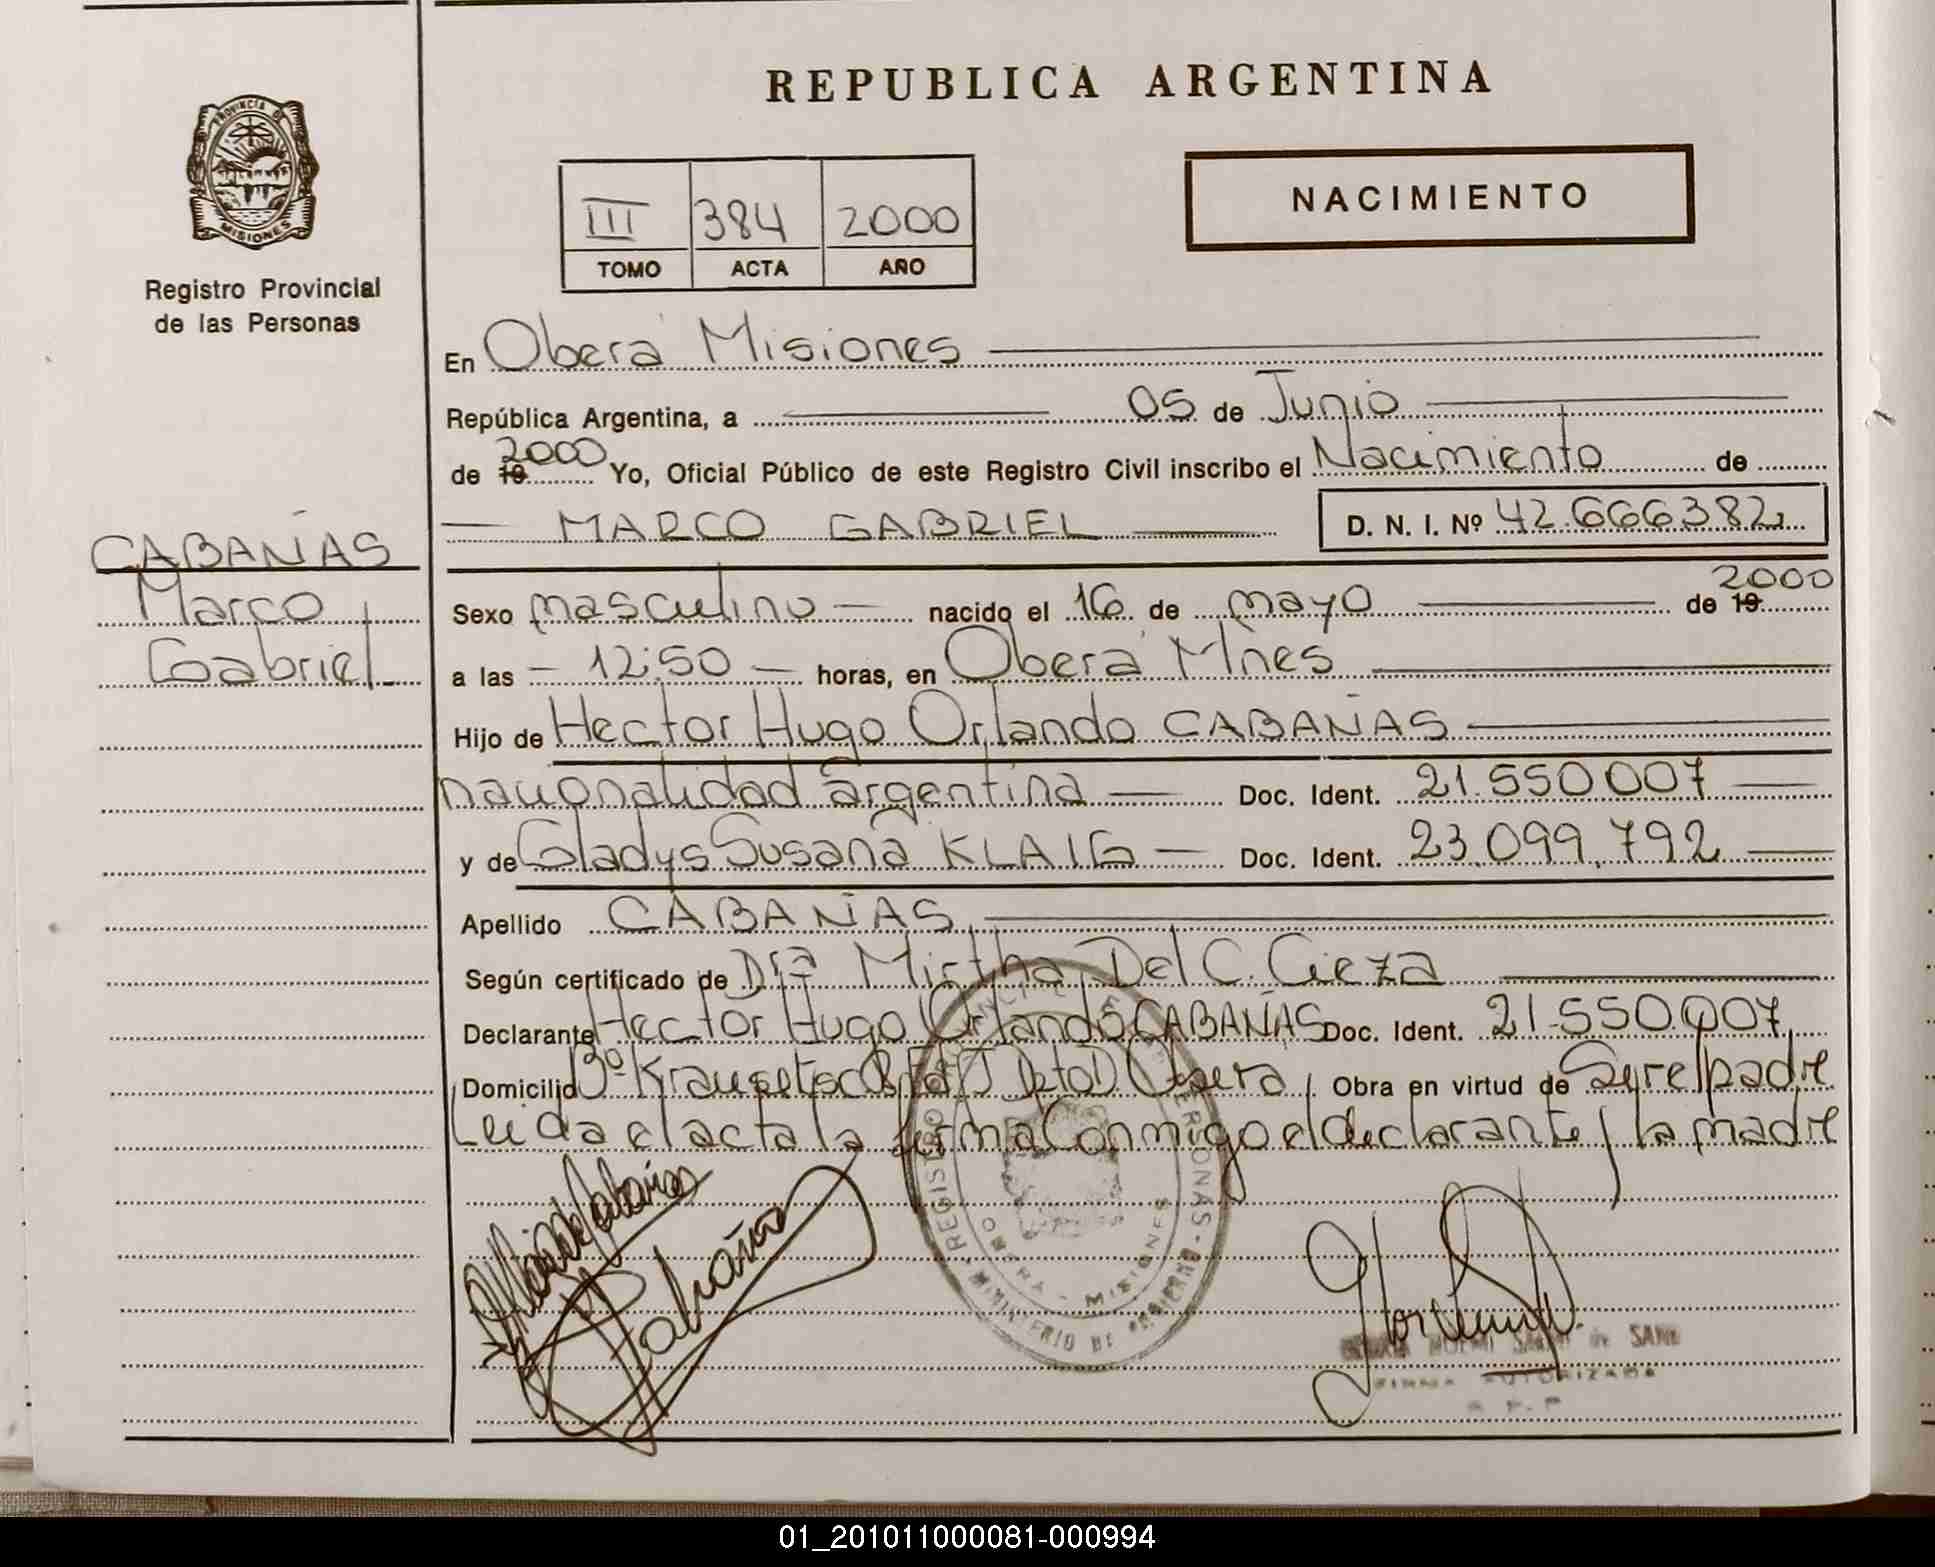 REPUBLICA ARGENTINA
PROVINCIA DE
MISIONES
Registro Provincial
de las Personas
III 384 2000
TOMO ACTA AÑO
NACIMIENTO
En Oberá Misiones
República Argentina, a 05 de Junio
de 19 2000 Yo, Oficial Público de este Registro Civil inscribo el Nacimiento de
MARCO GABRIEL D. N. I. Nº 42.666382
CABAÑAS
Marco
Gabriel
Sexo masculino nacido el 16 de mayo de 19 2000
a las 12:50 horas, en Oberá Mnes
Hijo de Hector Hugo Orlando CABAÑAS
nacionalidad argentina Doc. Ident. 21.550.007
y de Gladys Susana KLAIG Doc. Ident. 23.099.792
Apellido CABAÑAS
Según certificado de Dra Mirtha Del C. Cieza
Declarante Hector Hugo Orlando CABAÑAS Doc. Ident. 21.550.007
Domicilio Bº Obera Obra en virtud de padre
Leida el acta la firma Conmigo el declarante y la madre
Cabañas
REGISTRO PERSONAS - MINISTERIO DE GOBIERNO
OBERA - MISIONES
NOEMI de SANI
FIRMA AUTORIZADA
01_201011000081-000994